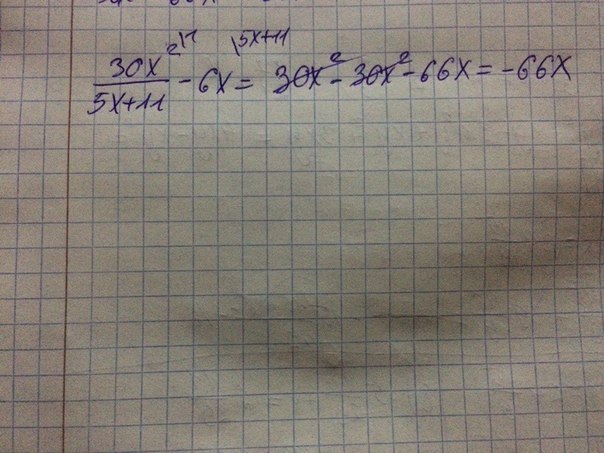 30x² \1 / 5x+11 - 6x \5x+11 = 30x² - 30x² - 66x = -66x